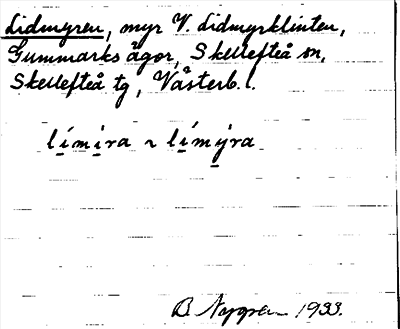 Lidmyren, myr V. Lidmyrklinten,
Gummarks ägor, Skellefteå sn,
Skellefteå tg, Västerb. l.
límira ~ límýra
B Nygren 1933.